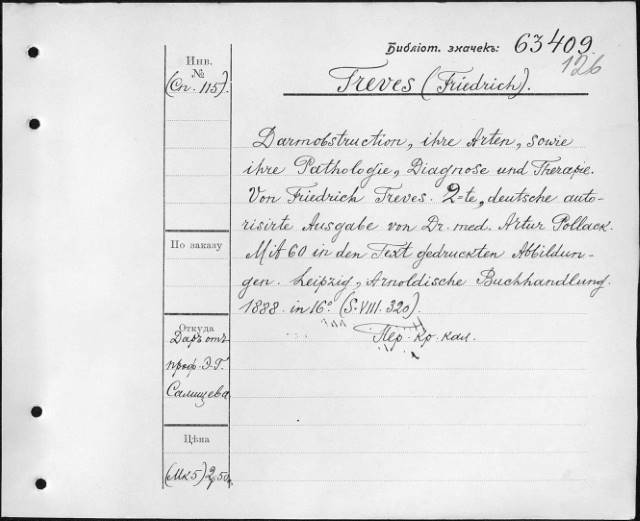 Библіот. значекъ: 63409
126
Инв.
№
(Сп. 115).
Treves (Friedrich).
Darmobstruction, ihre Arten, sowie
ihre Pathologie, Diagnose und Therapie.
Von Friedrich Treves. 2=te, deutsche auto-
risirte Ausgabe von Dr. med. Artur Pollack.
Mit 60 in den Text gedruckten Abbildun-
gen. Leipzig, Arnoldische Buchhandlung.
1888. in 16° (S. VIII. 320)
Пер. кр. кал.
По заказу
Откуда
Даръ отъ
проф. Э. Г.
Салищева
Цѣна
(Мк 5) 2,50